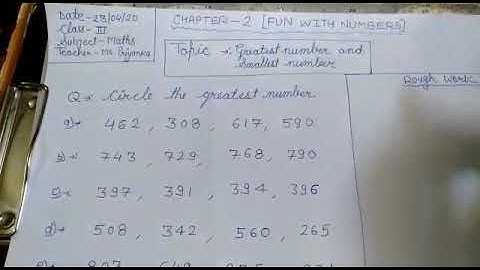 Date-23/04/20
Class-III
Subject-Maths
Teacher-Ms. Priyanka
CHAPTER-2 [FUN WITH NUMBERS]
Topic →: Greatest number and
Smallest number
Rough Work:
Q→ Circle the greatest number.
a)→ 462, 308, 617, 590
b)→ 743, 729, 768, 790
c)→ 397, 391, 394, 396
d)→ 508, 342, 560, 265